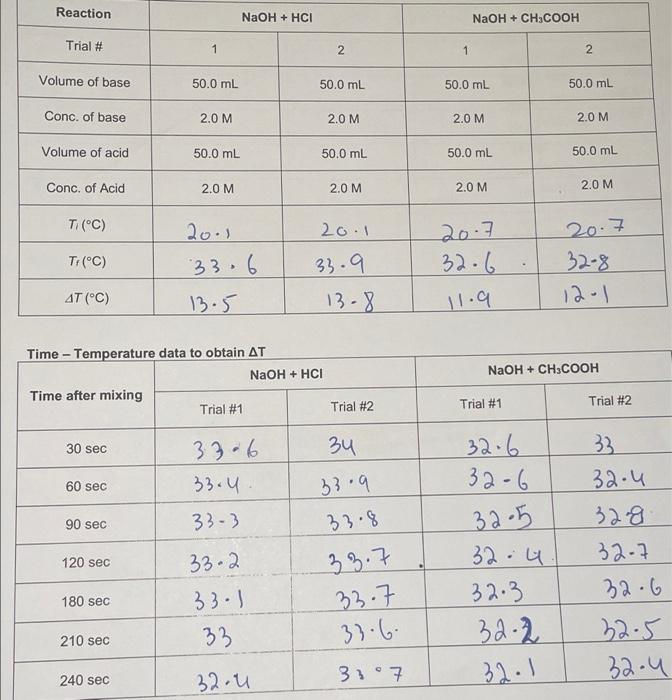 Reaction NaOH + HCl NaOH + CH₃COOH
Trial # 1 2 1 2
Volume of base 50.0 mL 50.0 mL 50.0 mL 50.0 mL
Conc. of base 2.0 M 2.0 M 2.0 M 2.0 M
Volume of acid 50.0 mL 50.0 mL 50.0 mL 50.0 mL
Conc. of Acid 2.0 M 2.0 M 2.0 M 2.0 M
Tᵢ (°C) 20.1 20.1 20.7 20.7
T_f (°C) 33.6 33.9 32.6 32.8
ΔT (°C) 13.5 13.8 11.9 12.1
Time – Temperature data to obtain ΔT
Time after mixing NaOH + HCl NaOH + CH₃COOH
Trial #1 Trial #2 Trial #1 Trial #2
30 sec 33.6 34 32.6 33
60 sec 33.4 33.9 32.6 32.4
90 sec 33.3 33.8 32.5 32.8
120 sec 33.2 33.7 32.4 32.7
180 sec 33.1 33.7 32.3 32.6
210 sec 33 33.6 32.2 32.5
240 sec 32.4 33.7 32.1 32.4